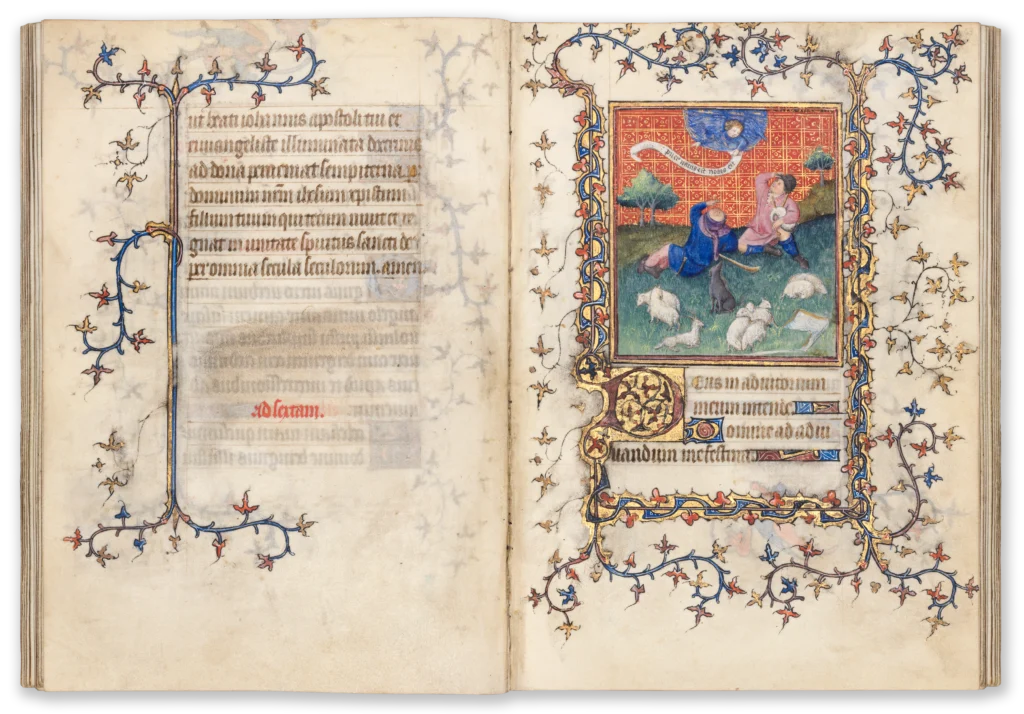 ut beati iohannis apostoli tui et
euuangeliste illuminata doctrinis
ad dona perueniat sempiterna. p
dominum nr̄m ihesum xpistum
filium tuum qui tecum uiuit et re
gnat in unitate spiritus sancti de
per omnia secula seculorum. amen
Ad sextam.
puer natus est nobis
Deus in adiutorium
meum intende
Domine ad adiu
uandum me festina